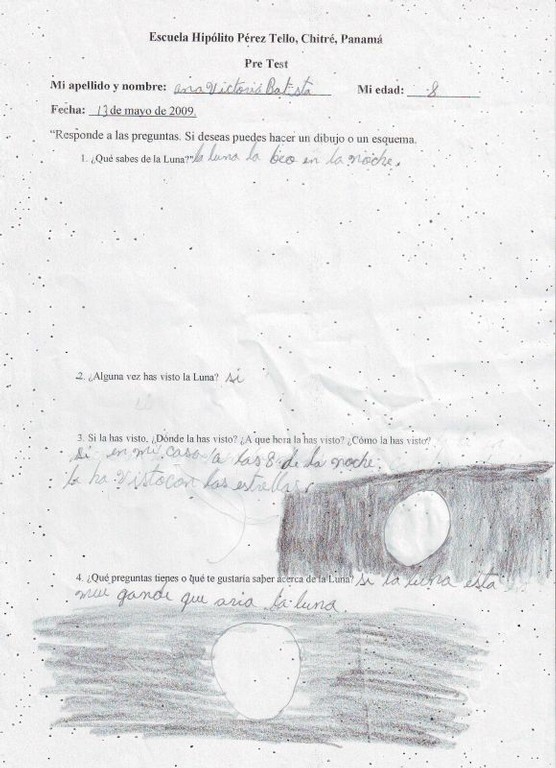 Escuela Hipólito Pérez Tello, Chitré, Panamá
Pre Test
Mi apellido y nombre: ana Victoria Batista Mi edad: 8
Fecha: 13 de mayo de 2009.
"Responde a las preguntas. Si deseas puedes hacer un dibujo o un esquema.
1. ¿Qué sabes de la Luna?" la luna la beo en la noche.
2. ¿Alguna vez has visto la Luna? si
3. Si la has visto, ¿Dónde la has visto? ¿A que hora la has visto? ¿Cómo la has visto?
si en mi casa a las 8 de la noche.
la ha visto con las estrellas
4. ¿Qué preguntas tienes o qué te gustaría saber acerca de la Luna? si la luna esta
mui gande que aria la luna